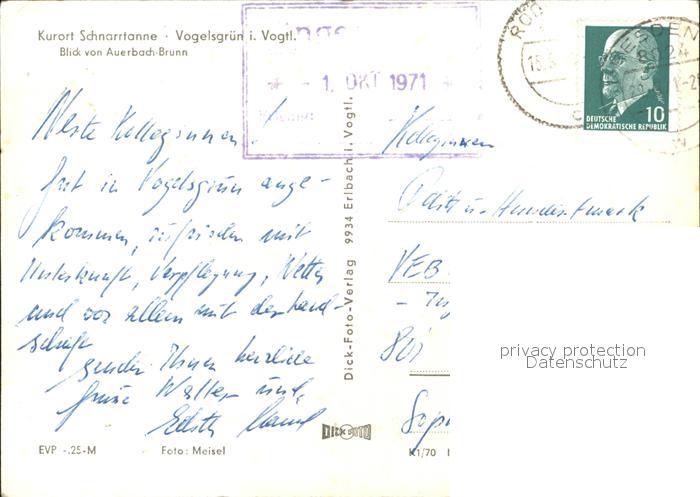 Kurort Schnarrtanne · Vogelsgrün i. Vogtl.
Blick von Auerbach-Brunn
1. OKT 1971
DEUTSCHE
DEMOKRATISCHE REPUBLIK
10
Werte Kolleginnen!
fast in Vogelsgrün ange-
kommen, zufrieden mit
Unterkunft, Verpflegung, Wetter
und vor allem mit der Land-
schaft
senden Ihnen herzliche
Grüsse Walter und
Edith
Kolleginnen
u.
VEB
801
Dick-Foto-Verlag 9934 Erlbach i. Vogtl.
DICK FOTO
EVP -.25-M
Foto: Meisel
K1/70
privacy protection
Datenschutz